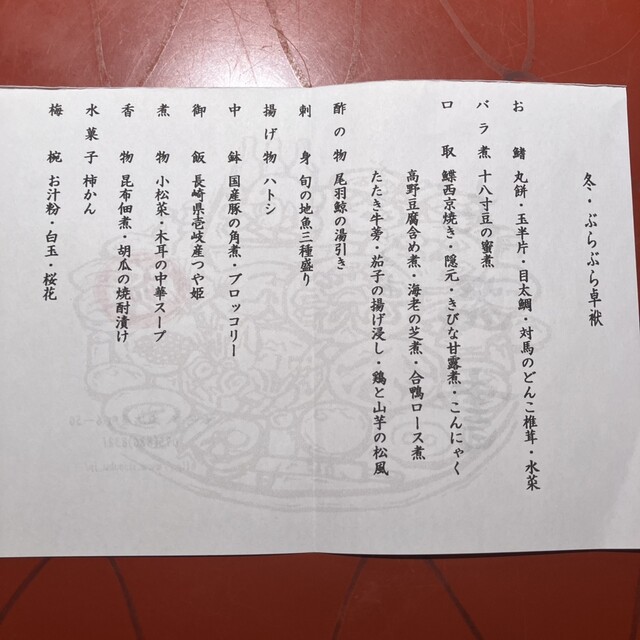 冬・ぶらぶら卓袱
お鰭 丸餅・玉半片・目太鯛・対馬のどんこ椎茸・水菜
バラ煮 十八寸豆の蜜煮
口取 鰈西京焼き・隠元・きびな甘露煮・こんにゃく
高野豆腐含め煮・海老の芝煮・合鴨ロース煮
たたき牛蒡・茄子の揚げ浸し・鶏と山芋の松風
酢の物 尾羽鯨の湯引き
刺身 旬の地魚三種盛り
揚げ物 ハトシ
中鉢 国産豚の角煮・ブロッコリー
御飯 長崎県壱岐産つや姫
煮物 小松菜・木耳の中華スープ
香物 昆布佃煮・胡瓜の焼酎漬け
水菓子 柿かん
梅椀 お汁粉・白玉・桜花